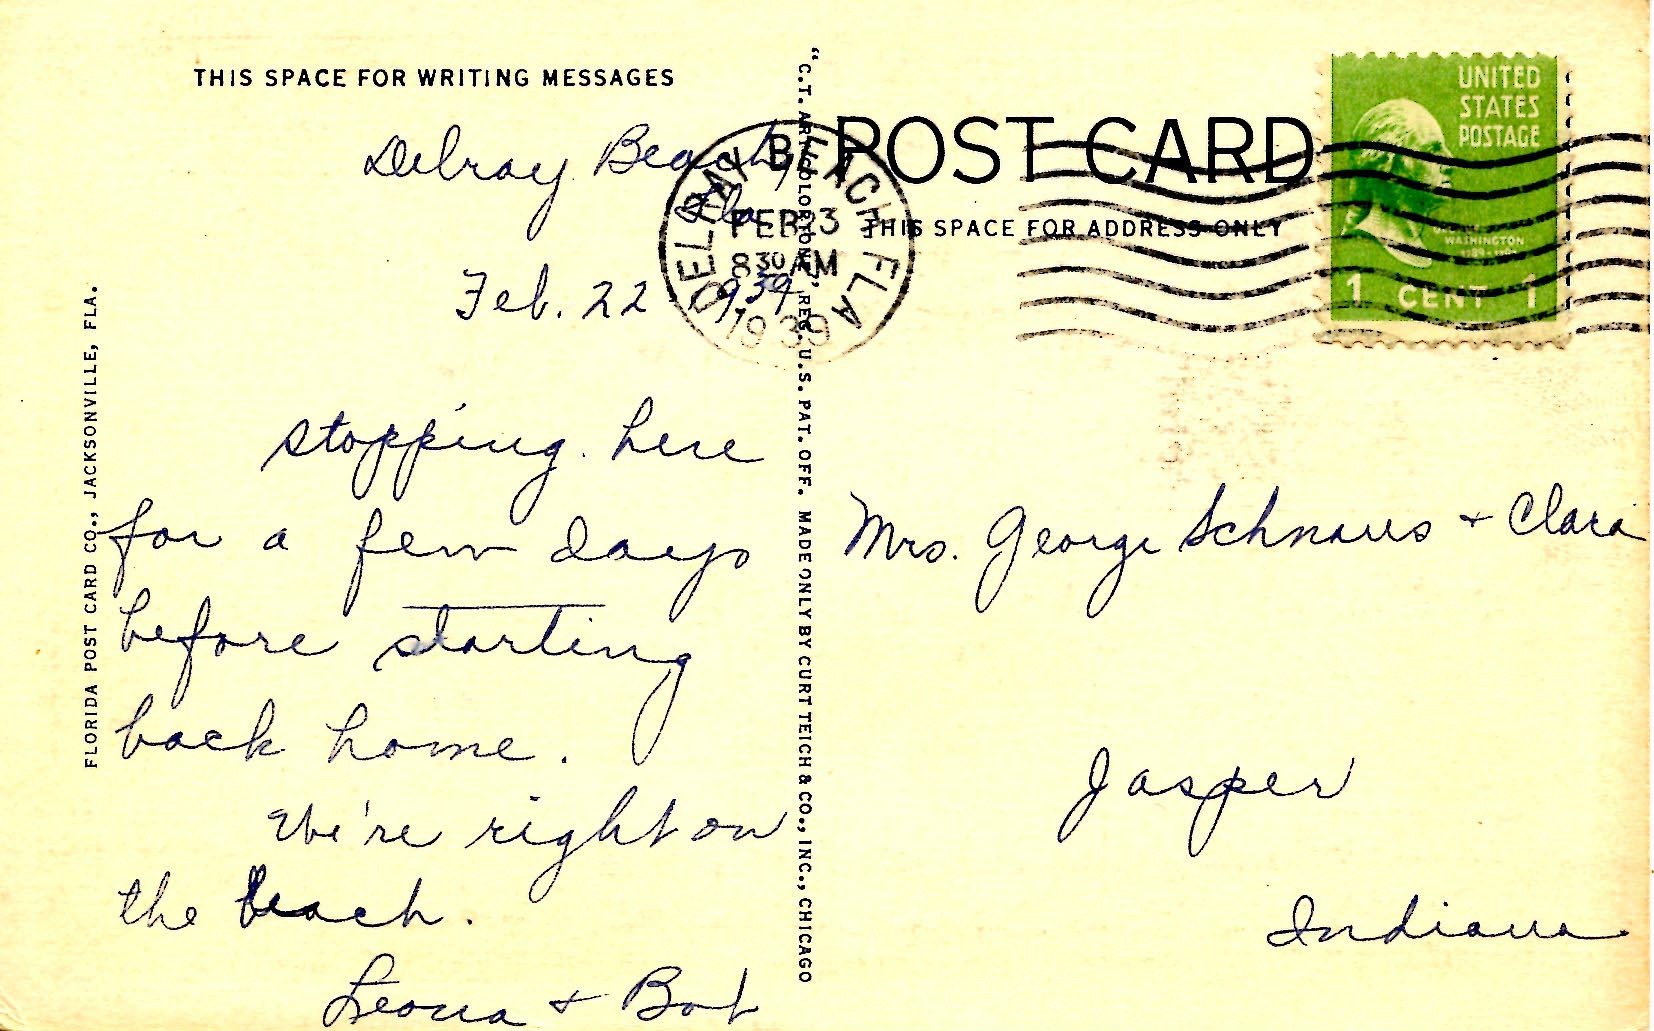 THIS SPACE FOR WRITING MESSAGES
Delray Beach,
Fla
Feb. 22 1939
stopping here
for a few days
before starting
back home.
We're right on
the beach.
Leona + Bob
FLORIDA POST CARD CO., JACKSONVILLE, FLA.
"C.T. ART-COLORTONE", REG. U.S. PAT. OFF. MADE ONLY BY CURT TEICH & CO., INC., CHICAGO
DELRAY BEACH FLA
FEB 23
8 30 AM
1939
POST CARD
THIS SPACE FOR ADDRESS ONLY
UNITED
STATES
POSTAGE
WASHINGTON
1 CENT 1
Mrs. George Schnaus + Clara
Jasper
Indiana